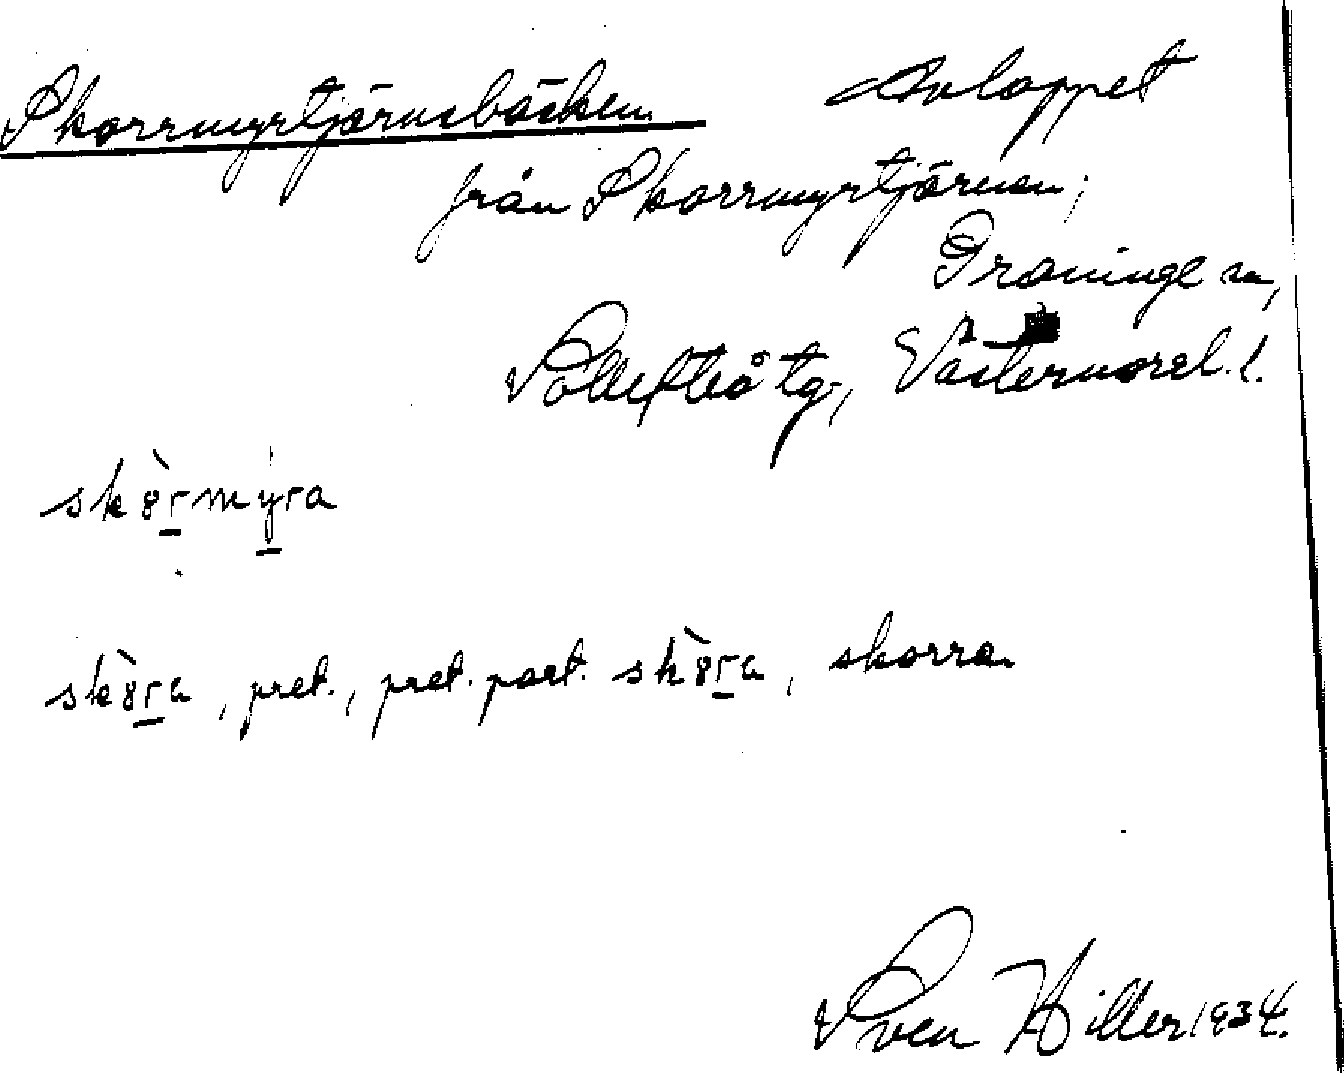 Skorrmyrtjärnsbäcken. Avloppet
från Skorrmyrtjärnen;
Graninge sn,
Sollefteå tg., Västernorrl. l.
sk8̀r̲my̲ra
sk8̀r̲a, pret., pret. part. sk8̀r̲a, skorra
Sven Hiller 1934.